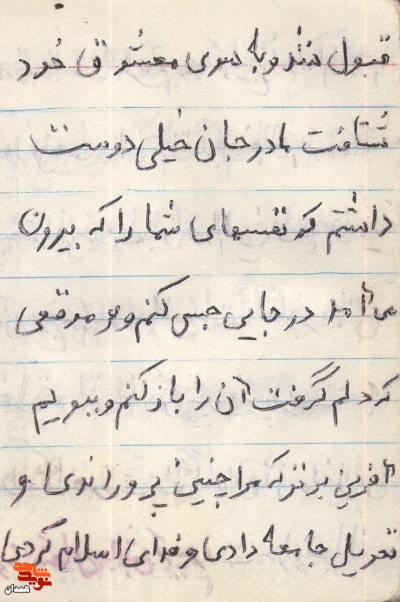 قبول شد و به سوی معشوق خود
شتافت مادر جان خیلی دوست
داشتم که نفسهای شما را که بیرون
می آمد در جایی حبس کنم و هر موقعی
که دلم گرفت آن را باز کنم و ببویم
آفرین بر تو که مرا چنین پروراندی و
تحویل جامعه دادی و فدای اسلام کردی
نوید شاهد
همدان